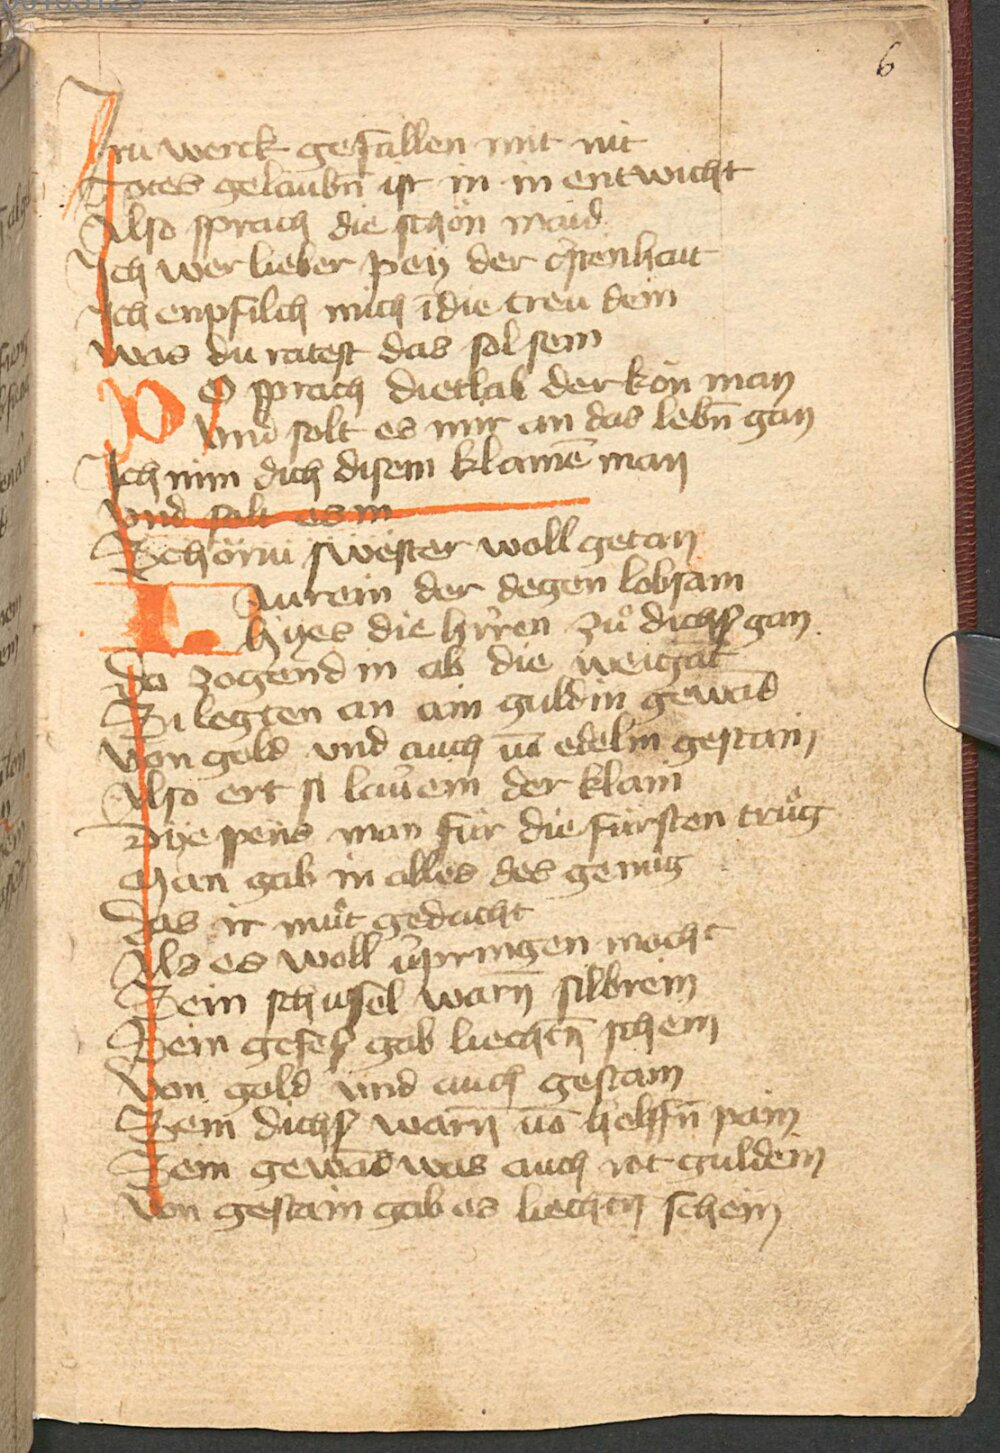 6
Iru werck gefallen mir nit
Gotes gelaubn̄ ist in in entwicht
Also sprach die schön maid
Ich wer lieber pey der cristenhait
Ich enpfilch mich ī die treu dein
was du ratest das sol sein
Do sprach dietlab der kön man
vnd solt es mir an das lebn̄ gan
Ich nim dich disem klainē man
vnd solt es m
Schönu swester woll getan
Laurein der degen lobsam
hyes die hr̄ren zů dichs gan
Da zogend in ab die weigāt
Si legten an ain guldin gewād
von gold vnd auch vō edelm gestain
Also ert si laurein der klain
Dye speiis man für die fürsten trůg
Man gab in alles des genug
Das ir můt gedacht
Als es woll volpringen mocht
Sein schussel warn̄ silbrein
Sein gefes gab liechtn̄ schein
von gold vnd auch gestain
Sein dichs warn̄ vō helffn̄ pain
Sein gewād was auch rot guldein
von gestain gab es liechtn schein